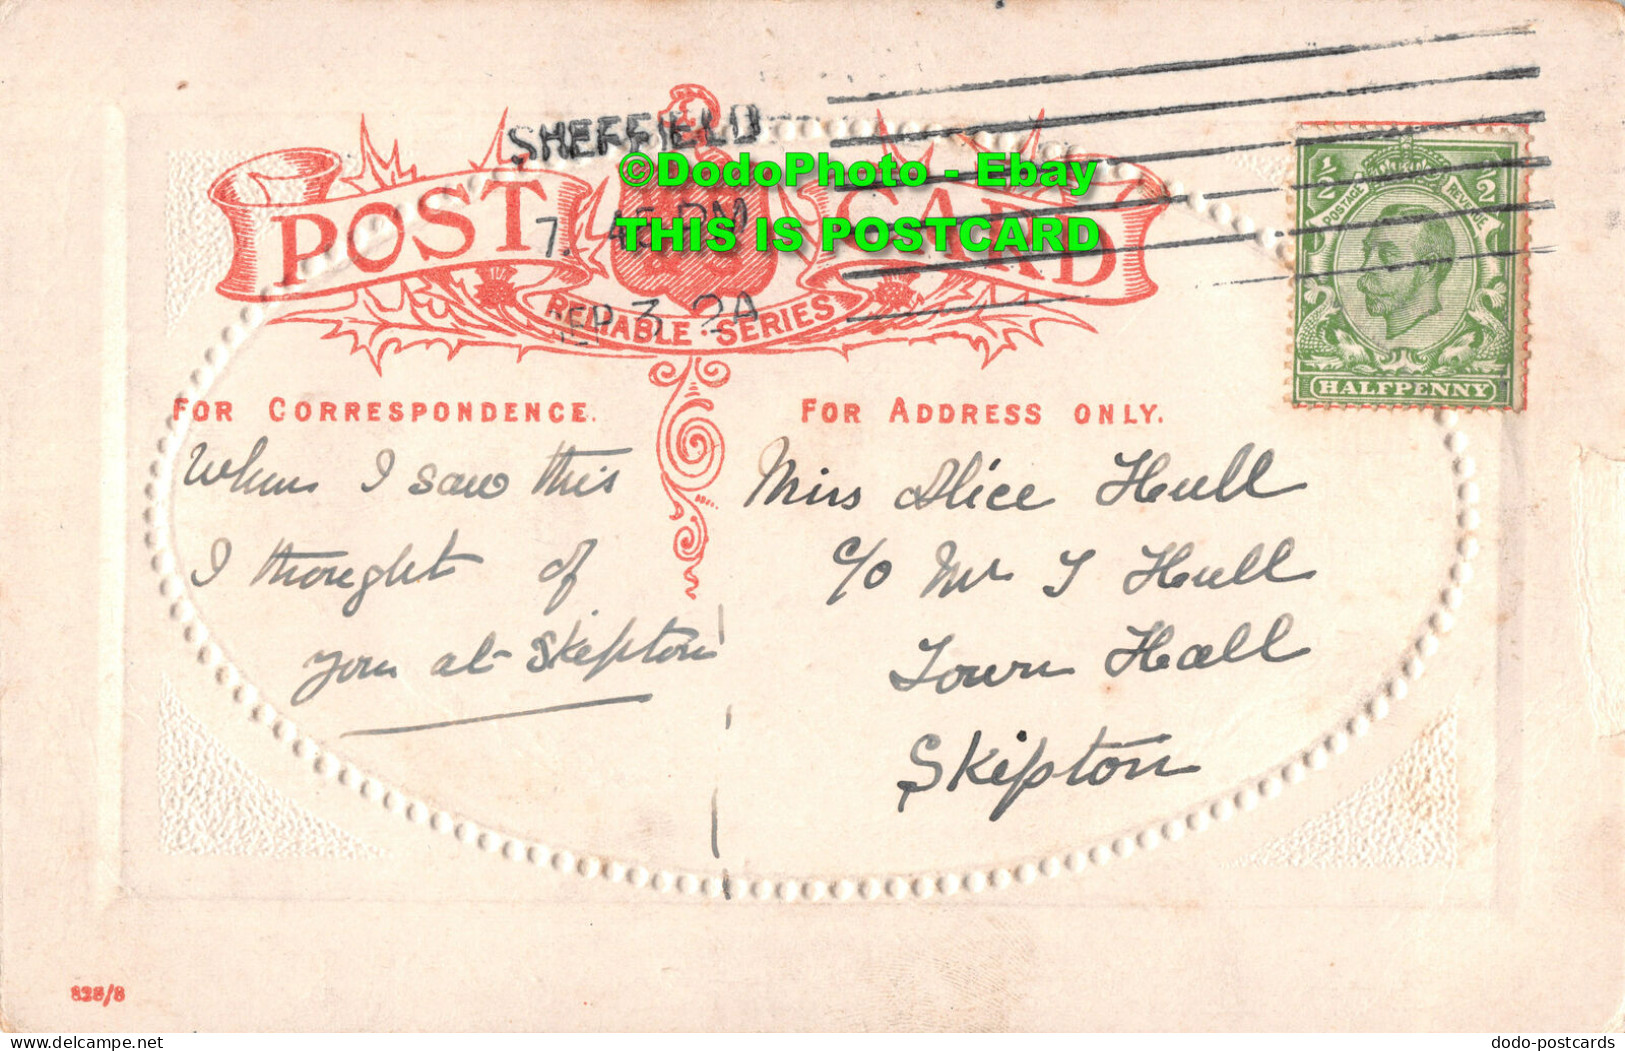 SHEFFIELD
©DodoPhoto - Ebay
POST CARD
7. 45 PM
THIS IS POSTCARD
SEP 3 2A
RELIABLE · SERIES
½ POSTAGE REVENUE ½
HALFPENNY
FOR CORRESPONDENCE.
FOR ADDRESS ONLY.
When I saw this
I thought of
you at Skipton
Miss Alice Hull
c/o Mr T Hull
Town Hall
Skipton
828/8
delcampe.net
dodo-postcards